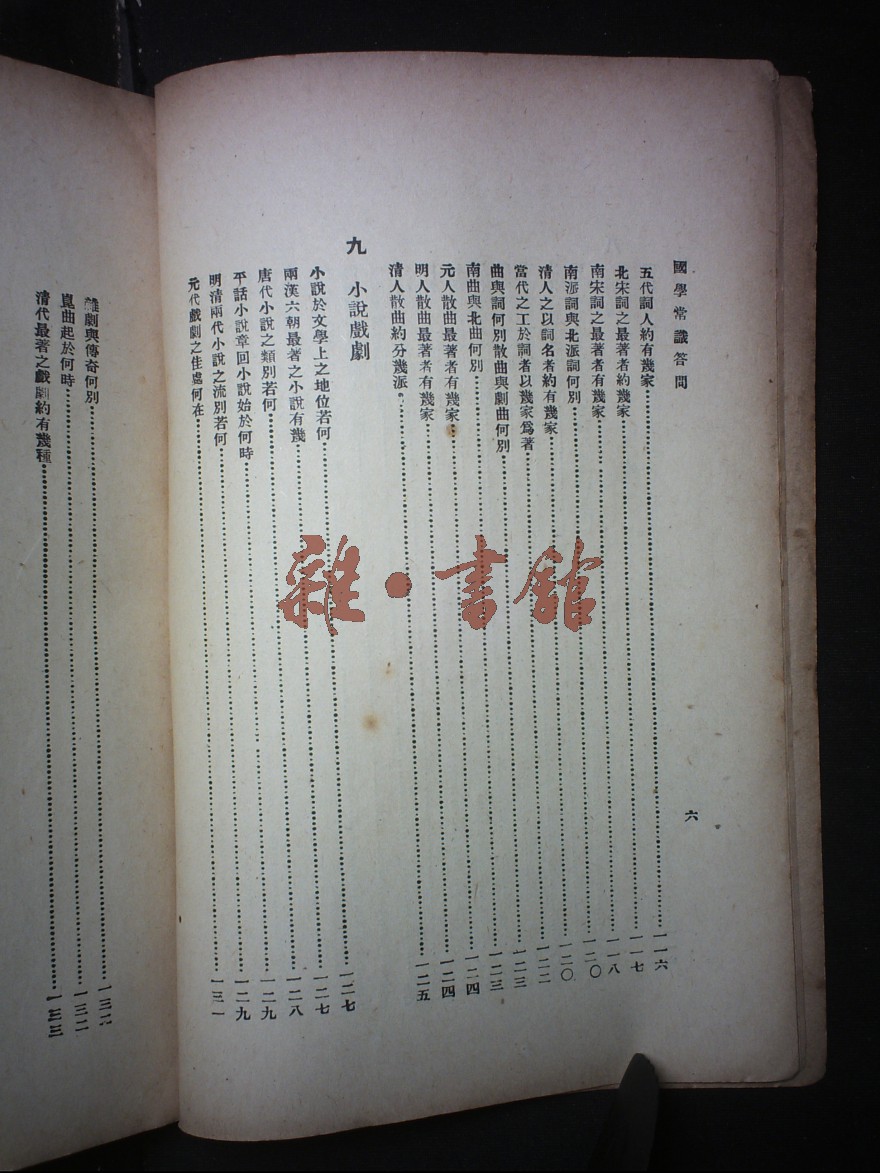 國學常識答問
六
五代詞人約有幾家……一一六
北宋詞之最著者約幾家……一一七
南宋詞之最著者有幾家……一一八
南派詞與北派詞何別……一二〇
清人之以詞名者約有幾家……一二〇
當代之工於詞者以幾家爲著……一二二
曲與詞何別散曲與劇曲何別……一二三
南曲與北曲何別……一二三
元人散曲最著者有幾家……一二四
明人散曲最著者有幾家……一二四
清人散曲約分幾派……一二五
九 小說戲劇
小說於文學上之地位若何……一二七
兩漢六朝最著之小說有幾……一二七
唐代小說之類別若何……一二八
平話小說章回小說始於何時……一二九
明清兩代小說之流別若何……一二九
元代戲劇之佳處何在……一三一
雜劇與傳奇何別……
崑曲起於何時……一三二
清代最著之戲劇約有幾種……一三三
雜·書館